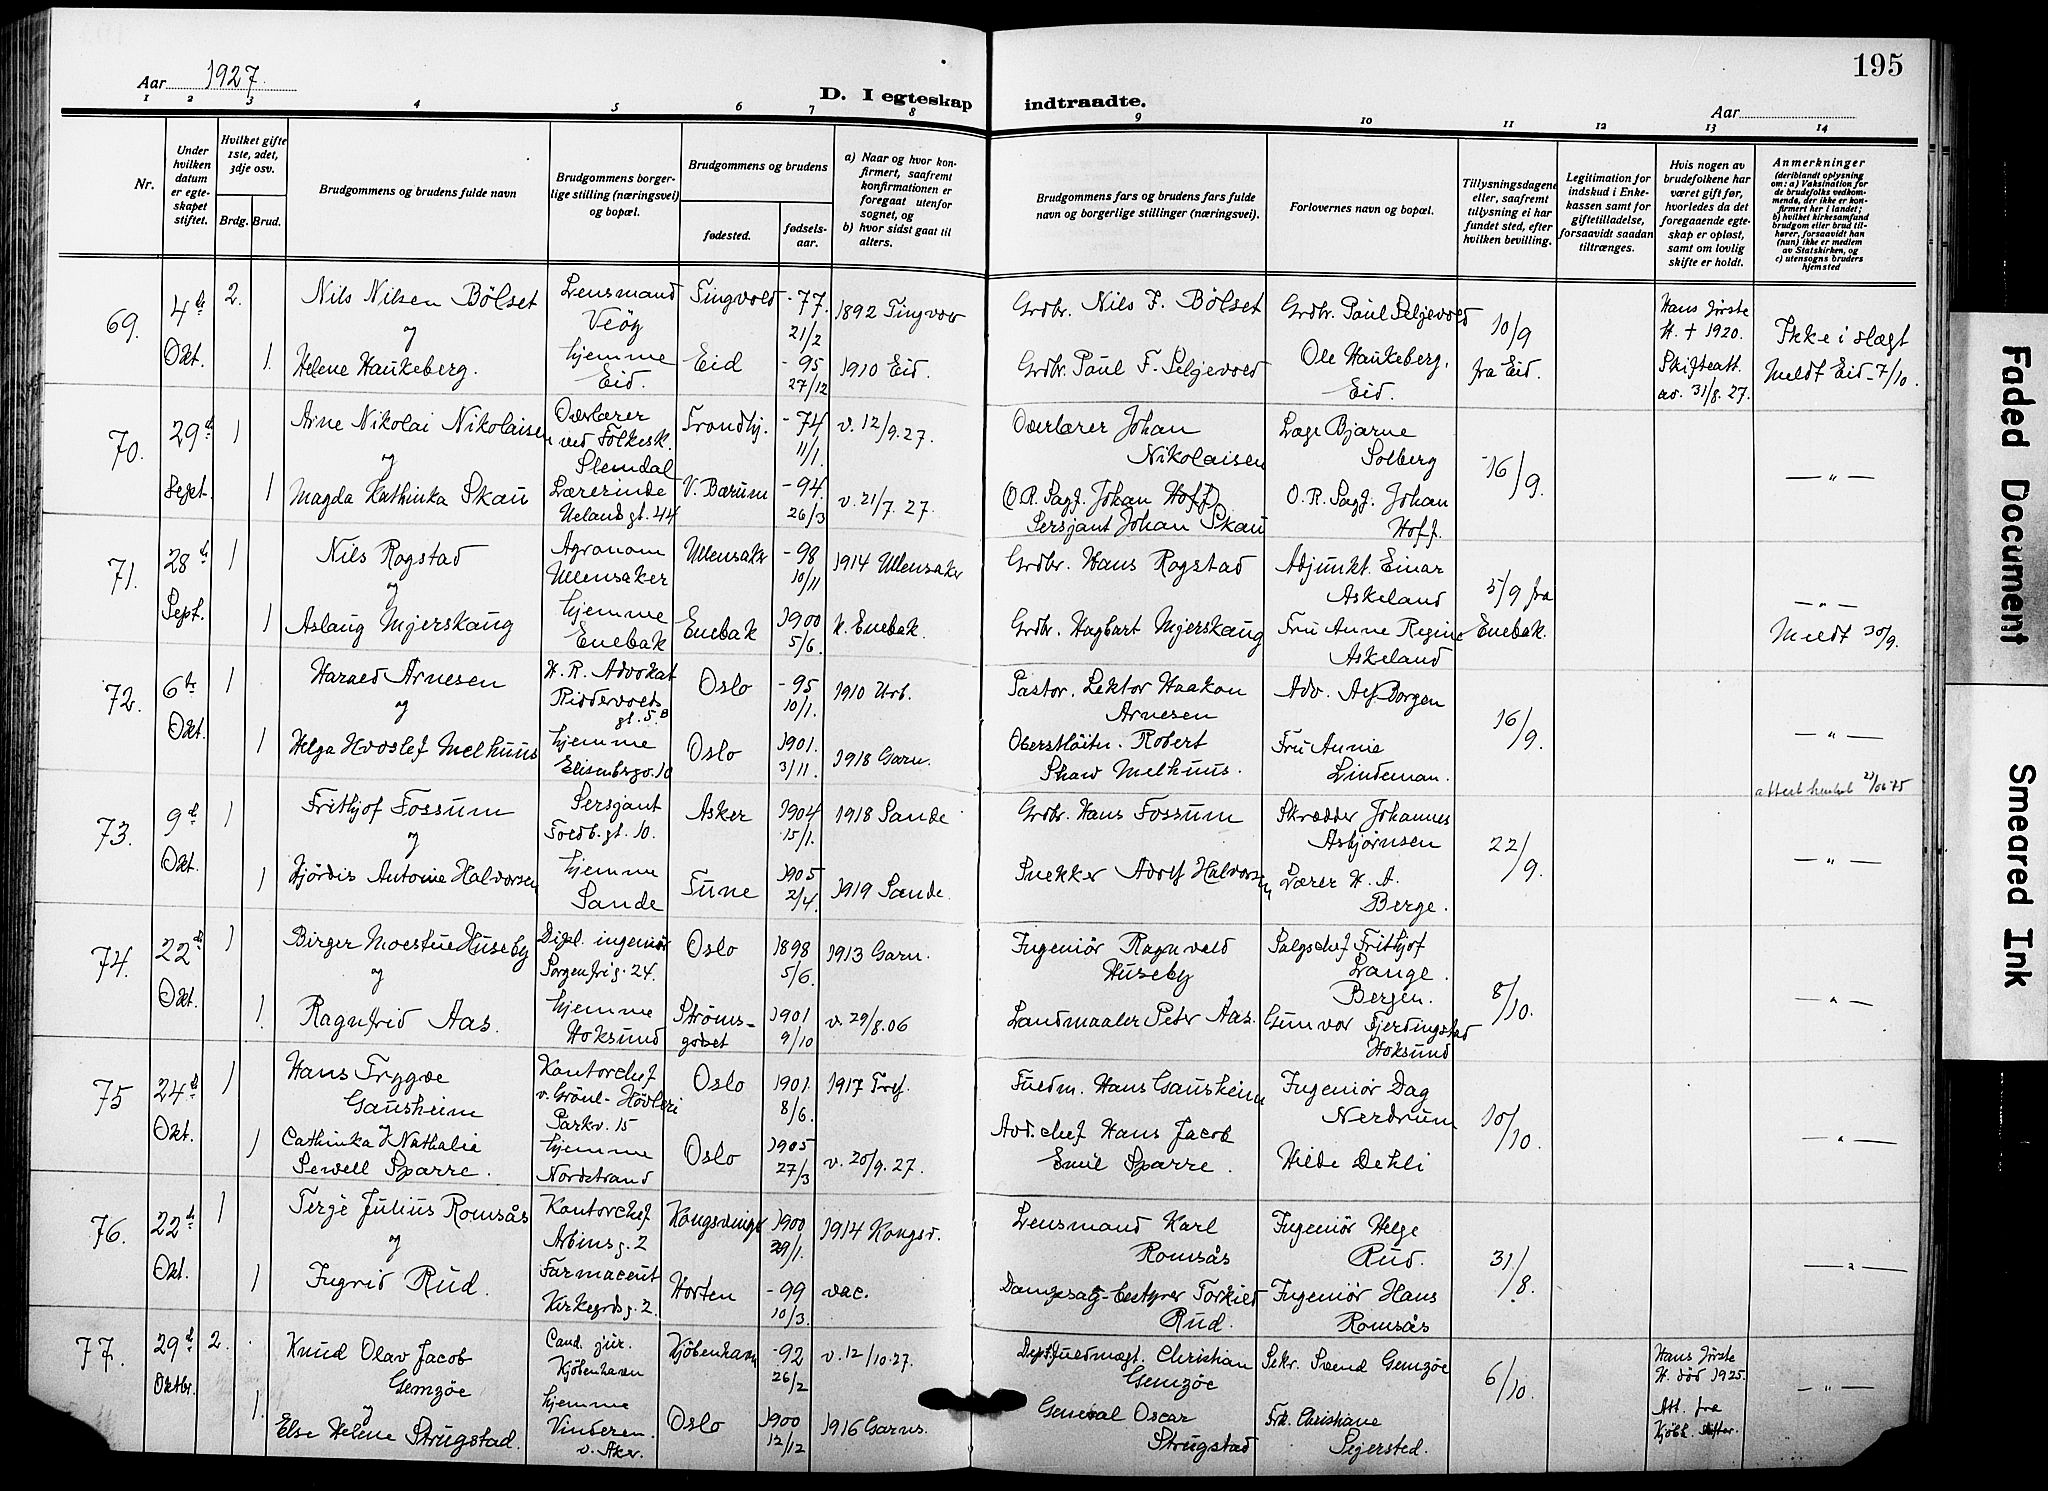 195
Aar 1927.
D. I egteskap indtraadte.
Aar
1 2 3 4 5 6 7 8 9 10 11 12 13 14
Nr.
Under hvilken datum er egteskapet stiftet.
Hvilket gifte 1ste, 2det, 3dje osv.
Brdg. Brud.
Brudgommens og brudens fulde navn
Brudgommens borgerlige stilling (næringsvei) og bopæl.
Brudgommens og brudens
fødested.
fødselsaar.
a) Naar og hvor konfirmert, saafremt konfirmationen er foregaat utenfor sognet, og
b) hvor sidst gaat til alters.
Brudgommens fars og brudens fars fulde navn og borgerlige stillinger (næringsvei).
Forlovernes navn og bopæl.
Tillysningsdagene eller, saafremt tillysning ei har fundet sted, efter hvilken bevilling.
Legitimation for indskud i Enkekassen samt for giftetilladelse, forsaavidt saadan tiltrænges.
Hvis nogen av brudefolkene har været gift før, hvorledes da det foregaaende egteskap er opløst, samt om lovlig skifte er holdt.
Anmerkninger
(deriblandt oplysning om: a) Vaksination for de brudefolks vedkommende, der ikke er konfirmert her i landet;
b) hvilket kirkesamfund brudgom eller brud tilhører, forsaavidt han (hun) ikke er medlem av Statskirken, og
c) utensogns bruders hjemsted
69. 4de Okt. 2. Nils Nilsen Bölset Lensmand Veöy Tingvold -77. 21/2 1892 Tingvold Grdbr. Nils F. Bölset Grdbr. Paul Seljevold 10/9 fra Eid. Hans förste H. † 1920. Skifteatt. av. 31/8. 27. Ikke i slægt
og
1. Helene Haukeberg. hjemme Eid. Eid -95 27/12 1910 Eid. Grdbr. Paul F. Seljevold Ole Haukeberg, Eid. Meldt Eid 7/10.
70. 29de Sept. 1 Arne Nikolai Nikolaisen Overlærer ved Folkesk. Slemdal Trondhj. -74 11/1. v. 12/9. 27. Overlærer Johan Nikolaisen Læge Bjarne Solberg 16/9. — " —
og
1 Magda Kathinka Skau Lærerinde Uelandsgt. 44 V. Bærum -94. 26/3 v. 21/7. 27. (O.R. Sagf. Johan Hoff) Sersjant Johan Skau O.R. Sagf. Johan Hoff.
71. 28de Sept. 1 Nils Rogstad Agronom Ullensaker Ullensakr -98 10/11 1914 Ullensaker Grdbr. Hans Rogstad Adjunkt Einar Askeland 5/9 fra Enebak. — " —
og
1 Aslaug Mjerskaug hjemme Enebak Enebak 1900 5/6. k. Enebak. Grdbr. Hagbart Mjerskaug Fru Anne Regine Askeland Meldt 30/9.
72. 6te Okt. 1 Harald Arnesen H. R. Advokat Riddervolds gt. 5.B Oslo -95 10/1. 1910 Urb. Pastor. Lektor Haakon Arnesen Adv. Alf Borgen 16/9. — " —
og
1 Helga Hvoslef Melhuus hjemme Elisenbergv. 10 Oslo 1901. 3/11. 1918 Garn. Oberstløitn. Robert Shaw Melhuus. Fru Annie Lindeman.
73. 9de Okt. 1 Frithjof Fossum Sersjant Toldb.gt. 10. Asker 1904 15/1. 1918 Sande Grdbr. Hans Fossum Skrædder Johannes Asbjørnsen 22/9. — " —
og
1 Hjördis Antonie Halvorsen hjemme Sande Tune 1905 2/4. 1919 Sande. Snekker Adolf Halvorsen Lærer H. A. Berge.
74. 22de Okt. 1 Birger Moestue Huseby Dipl. ingeniør Sorgenfrig. 24. Oslo 1898 5/6. 1913 Garn. Ingeniør Ragnvald Huseby Salgschef Frithjof Lange. Bergen. 8/10. — " —
og
1. Ragnfrid Aas. hjemme Hoksund Strömsgodset 1901 9/10 v. 29/8. 06 Landmaaler Peter Aas. Gunvor Fjerdingstad Hoksund
75 24de Okt. 1 Hans Trygve Gausheim Kontorchef v. Grönl-Hövleri Parkv. 15 Oslo 1901. 8/6. 1917 Tref. Fuldm. Hans Gausheim Ingeniør Dag Nerdrum 10/10. — " —
og
1 Cathinka Nathalia Sewell Sparre. hjemme Nordstrand Oslo 1905 27/3 v. 20/9. 27. Avd.chef Hans Jacob Emil Sparre. Hilde Dehli
76. 22de Okt. 1 Terje Julius Romsås Kontorchef Arbinsg. 2 Kongsvinger 1900 29/1. 1914 Kongsv. Lensmand Karl Romsås Ingeniør Helge Rud. 31/8. — " —
og
1 Ingrid Rud. Farmaceut Kirkegrdsg. 2. Horten -99 10/3. vac. Dampsag-bestyrer Torkild Rud. Ingeniør Hans Romsås
77. 29de Oktbr. 2. Knud Olav Jacob Gemzöe Cand. jur. Kjöbenhavn Kjöbenhavn -92 26/2 v. 12/10. 27. Dept.fuldmægt. Christian Gemzöe Sekr. Svend Gemzöe 6/10. Hans förste H. död 1925. Att. fra Kjöbh. Skifter. — " —
og
1. Else Helene Strugstad. hjemme Vinderen. v. Aker. Oslo 1900 12/12 1916 Garns. General Oscar Strugstad Frk. Christiane Sejersted.
Faded Document
Smeared Ink